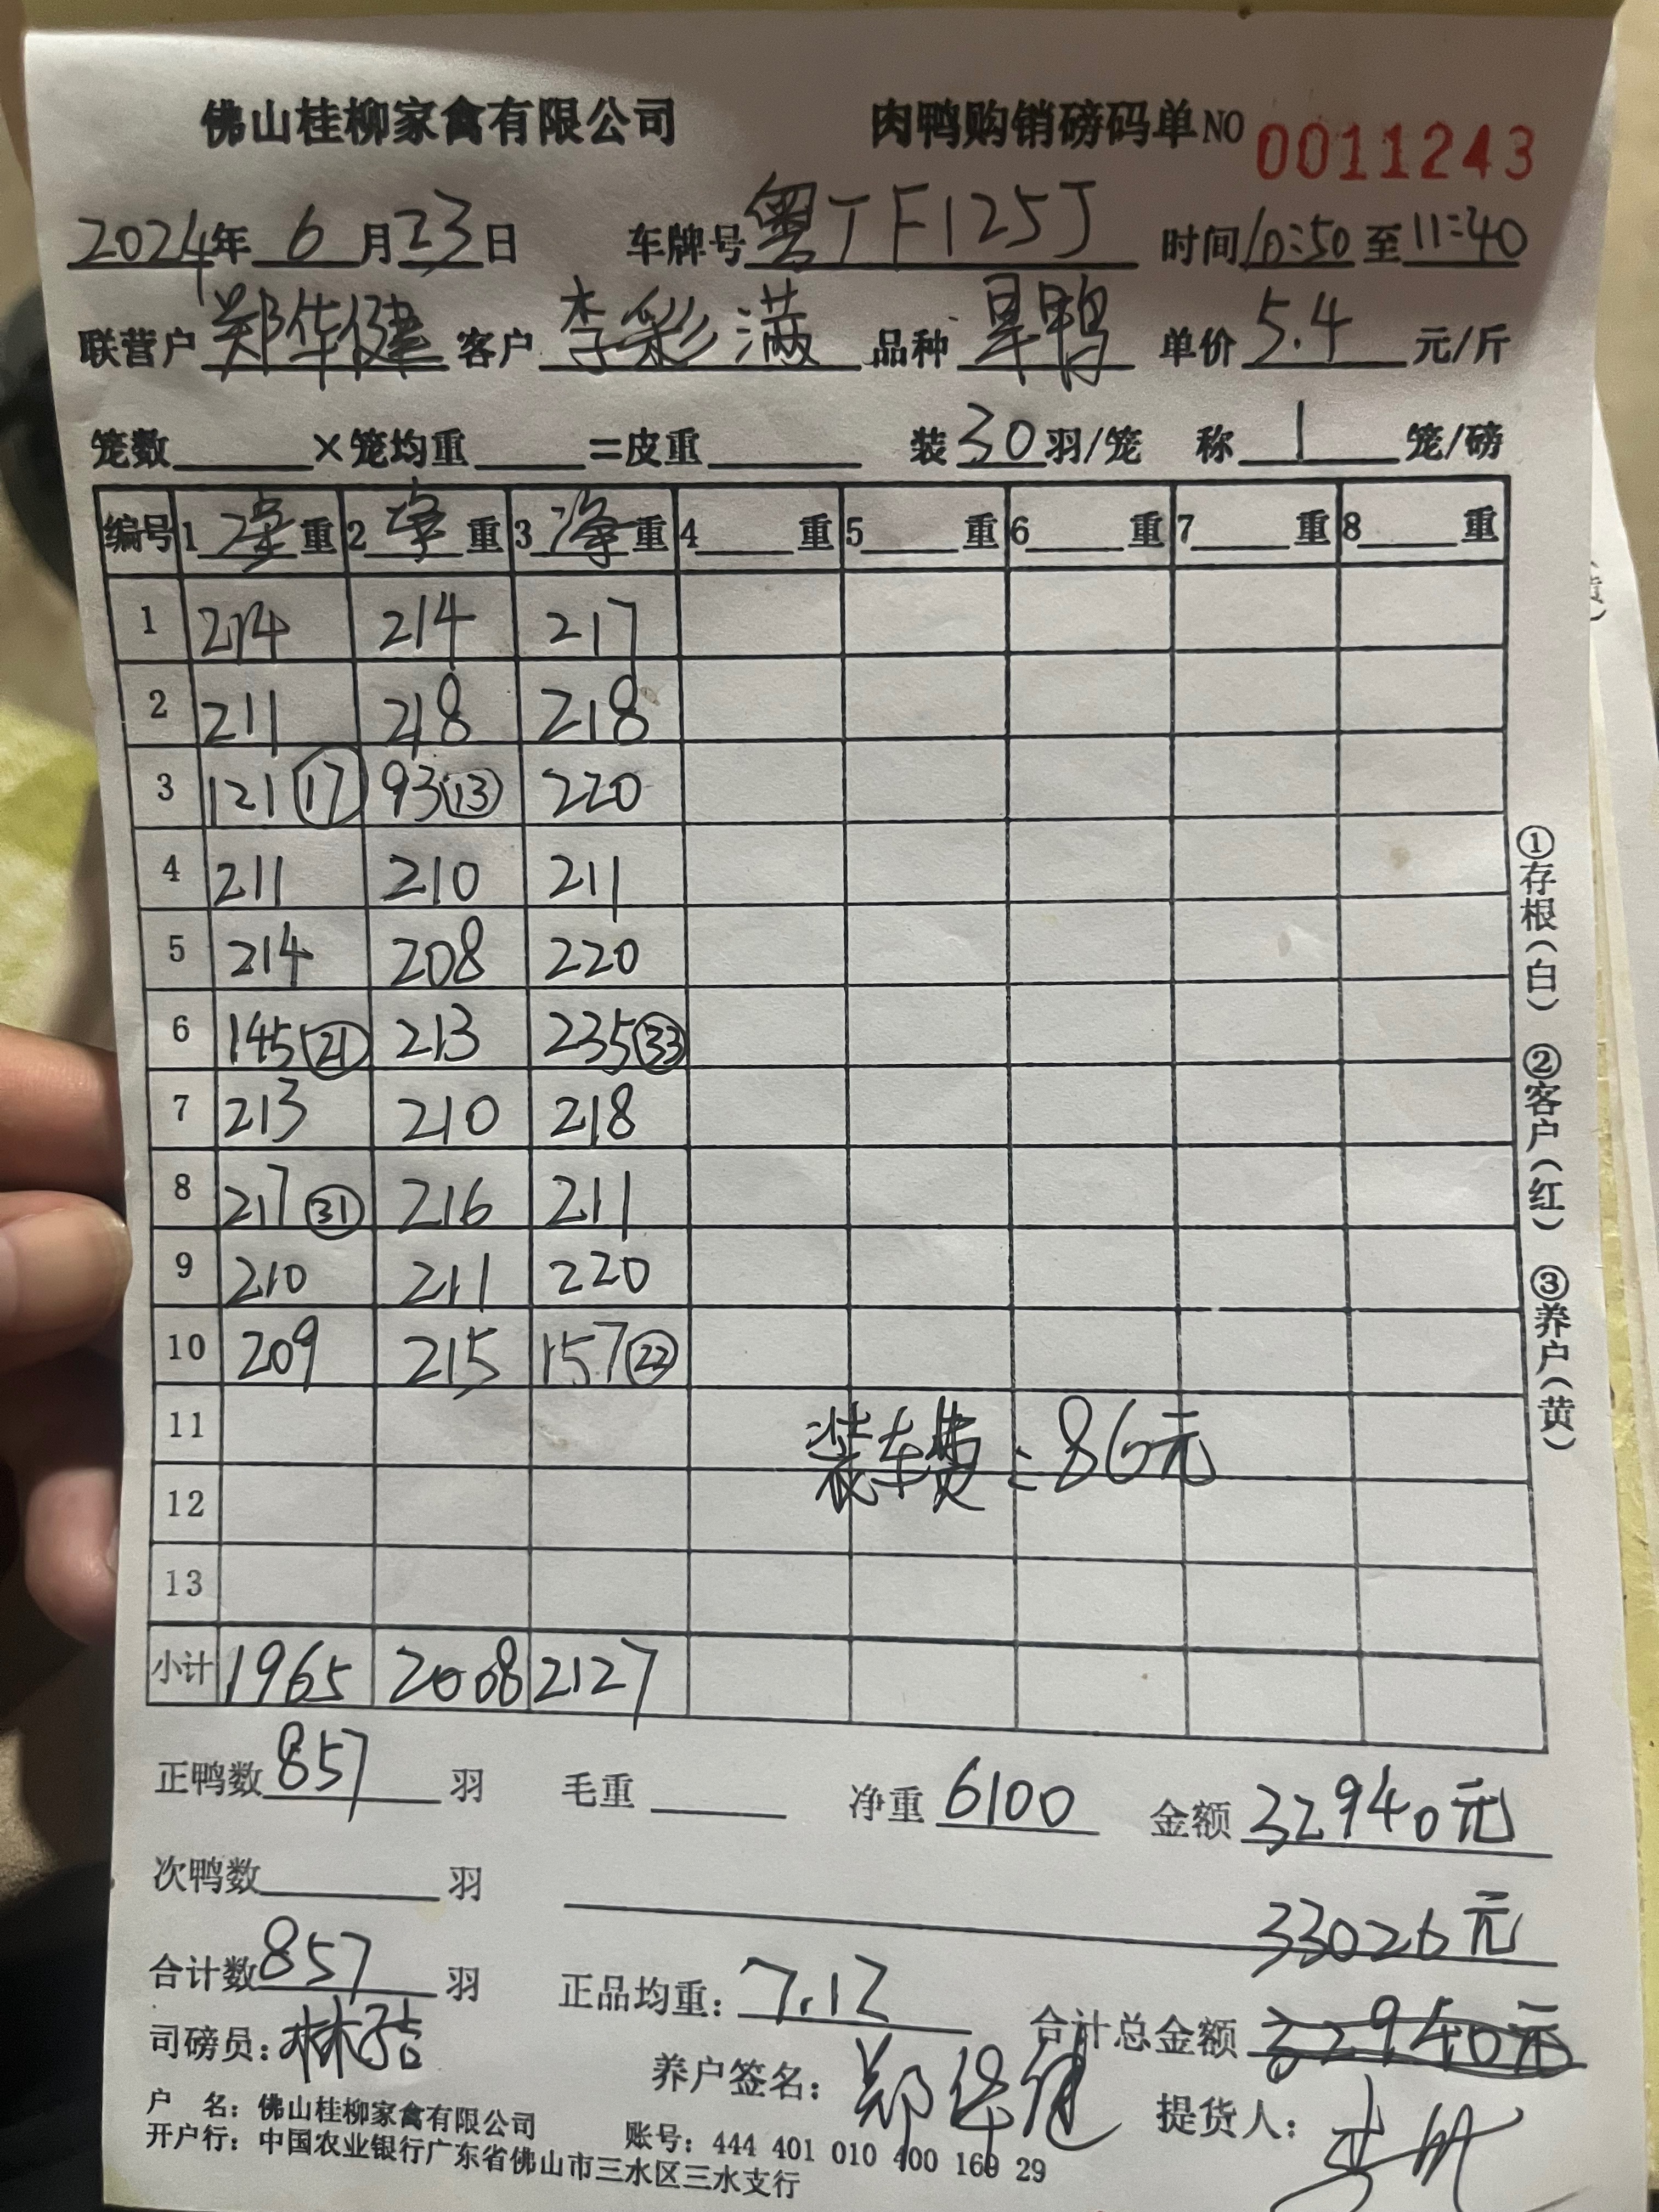 佛山桂柳家禽有限公司 肉鸭购销磅码单NO 0011243
2024年 6 月 23 日 车牌号 粤TF125J 时间 10:50 至 11:40
联营户 郑华健 客户 李彩满 品种 旱鸭 单价 5.4 元/斤
笼数 ×笼均重 =皮重 装 30 羽/笼 称 1 笼/磅
编号 1 净 重 2 净 重 3 净 重 4 重 5 重 6 重 7 重 8 重
1 214 214 217
2 211 218 218
3 121 ⑰ 93 ⑬ 220
4 211 210 211
5 214 208 220
6 145 ㉑ 213 235 ㉝
7 213 210 218
8 217 ㉛ 216 211
9 210 211 220
10 209 215 157 ㉒
11
装车费:86元
12
13
小计 1965 2008 2127
正鸭数 857 羽 毛重 净重 6100 金额 32940元
次鸭数 羽
33026元
合计数 857 羽 正品均重: 7.12 合计总金额 32940元
司磅员: 养户签名: 郑华健 提货人:
户 名: 佛山桂柳家禽有限公司 账号: 444 401 010 400 169 29
开户行: 中国农业银行广东省佛山市三水区三水支行
①存根(白) ②客户(红) ③养户(黄)